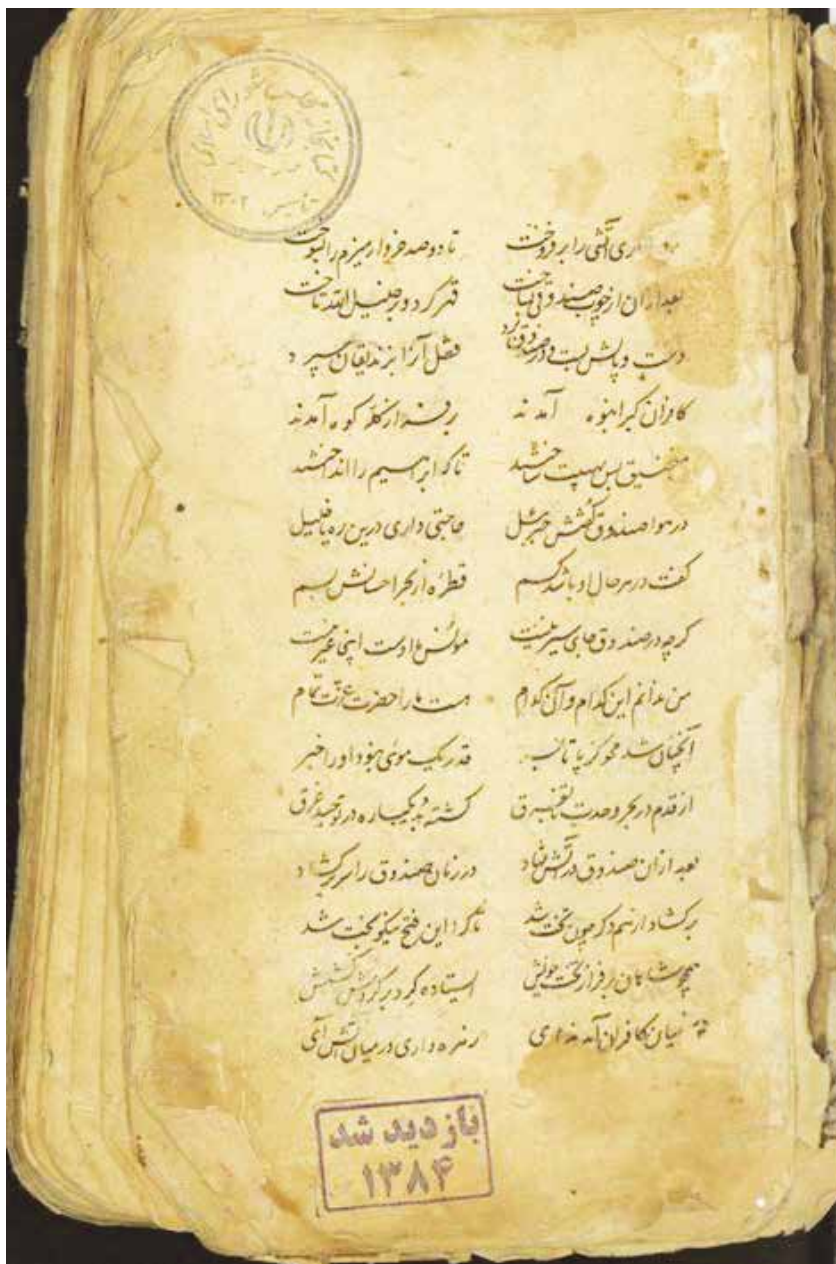 کتابخانه مجلس شورای اسلامی
تاسیس ۱۳۰۲
آتشی را بر فروخت تا دو صد خروار هیزم را بسوخت
بعد ازان از چوب صندوقی بساخت قهر کرد و بر خلیل الله تاخت
دست و پایش بست و در صندوق کرد قفل آنرا بر زندیقان سپرد
کافران گبر انبوه آمدند بر سر از کله کوه آمدند
منجنیق بس مهیب ساختند تا که ابراهیم را انداختند
در هوا صندوق گفتش جبرئیل حاجتی داری درین ره یا خلیل
گفت در هر حال او باشد کسم قطره از بحر احسانش بسم
گرچه در صندوق جای سیر نیست مونس ما اوست اینجا غیر نیست
من ندانم این کدام و آن کدام هست ما را حضرت عزت تمام
آنچنان شد محو کز پا تا بسر قدر یک موئی نبود او را خبر
از قدم در بحر وحدت تا بفرق گشته بد یکباره در توحید غرق
بعد ازان صندوق در آتش فتاد در زمان صندوق را سر برگشاد
برگشاد از هم دگر چون تخت شد تا که این فتح نیکو بخت شد
همچو شاهان بر فراز تخت خویش ایستاده گرد بر گردش
میان کافران آمد ندای زنده داری در میان آتش آی
بازدید شد
۱۳۸۴